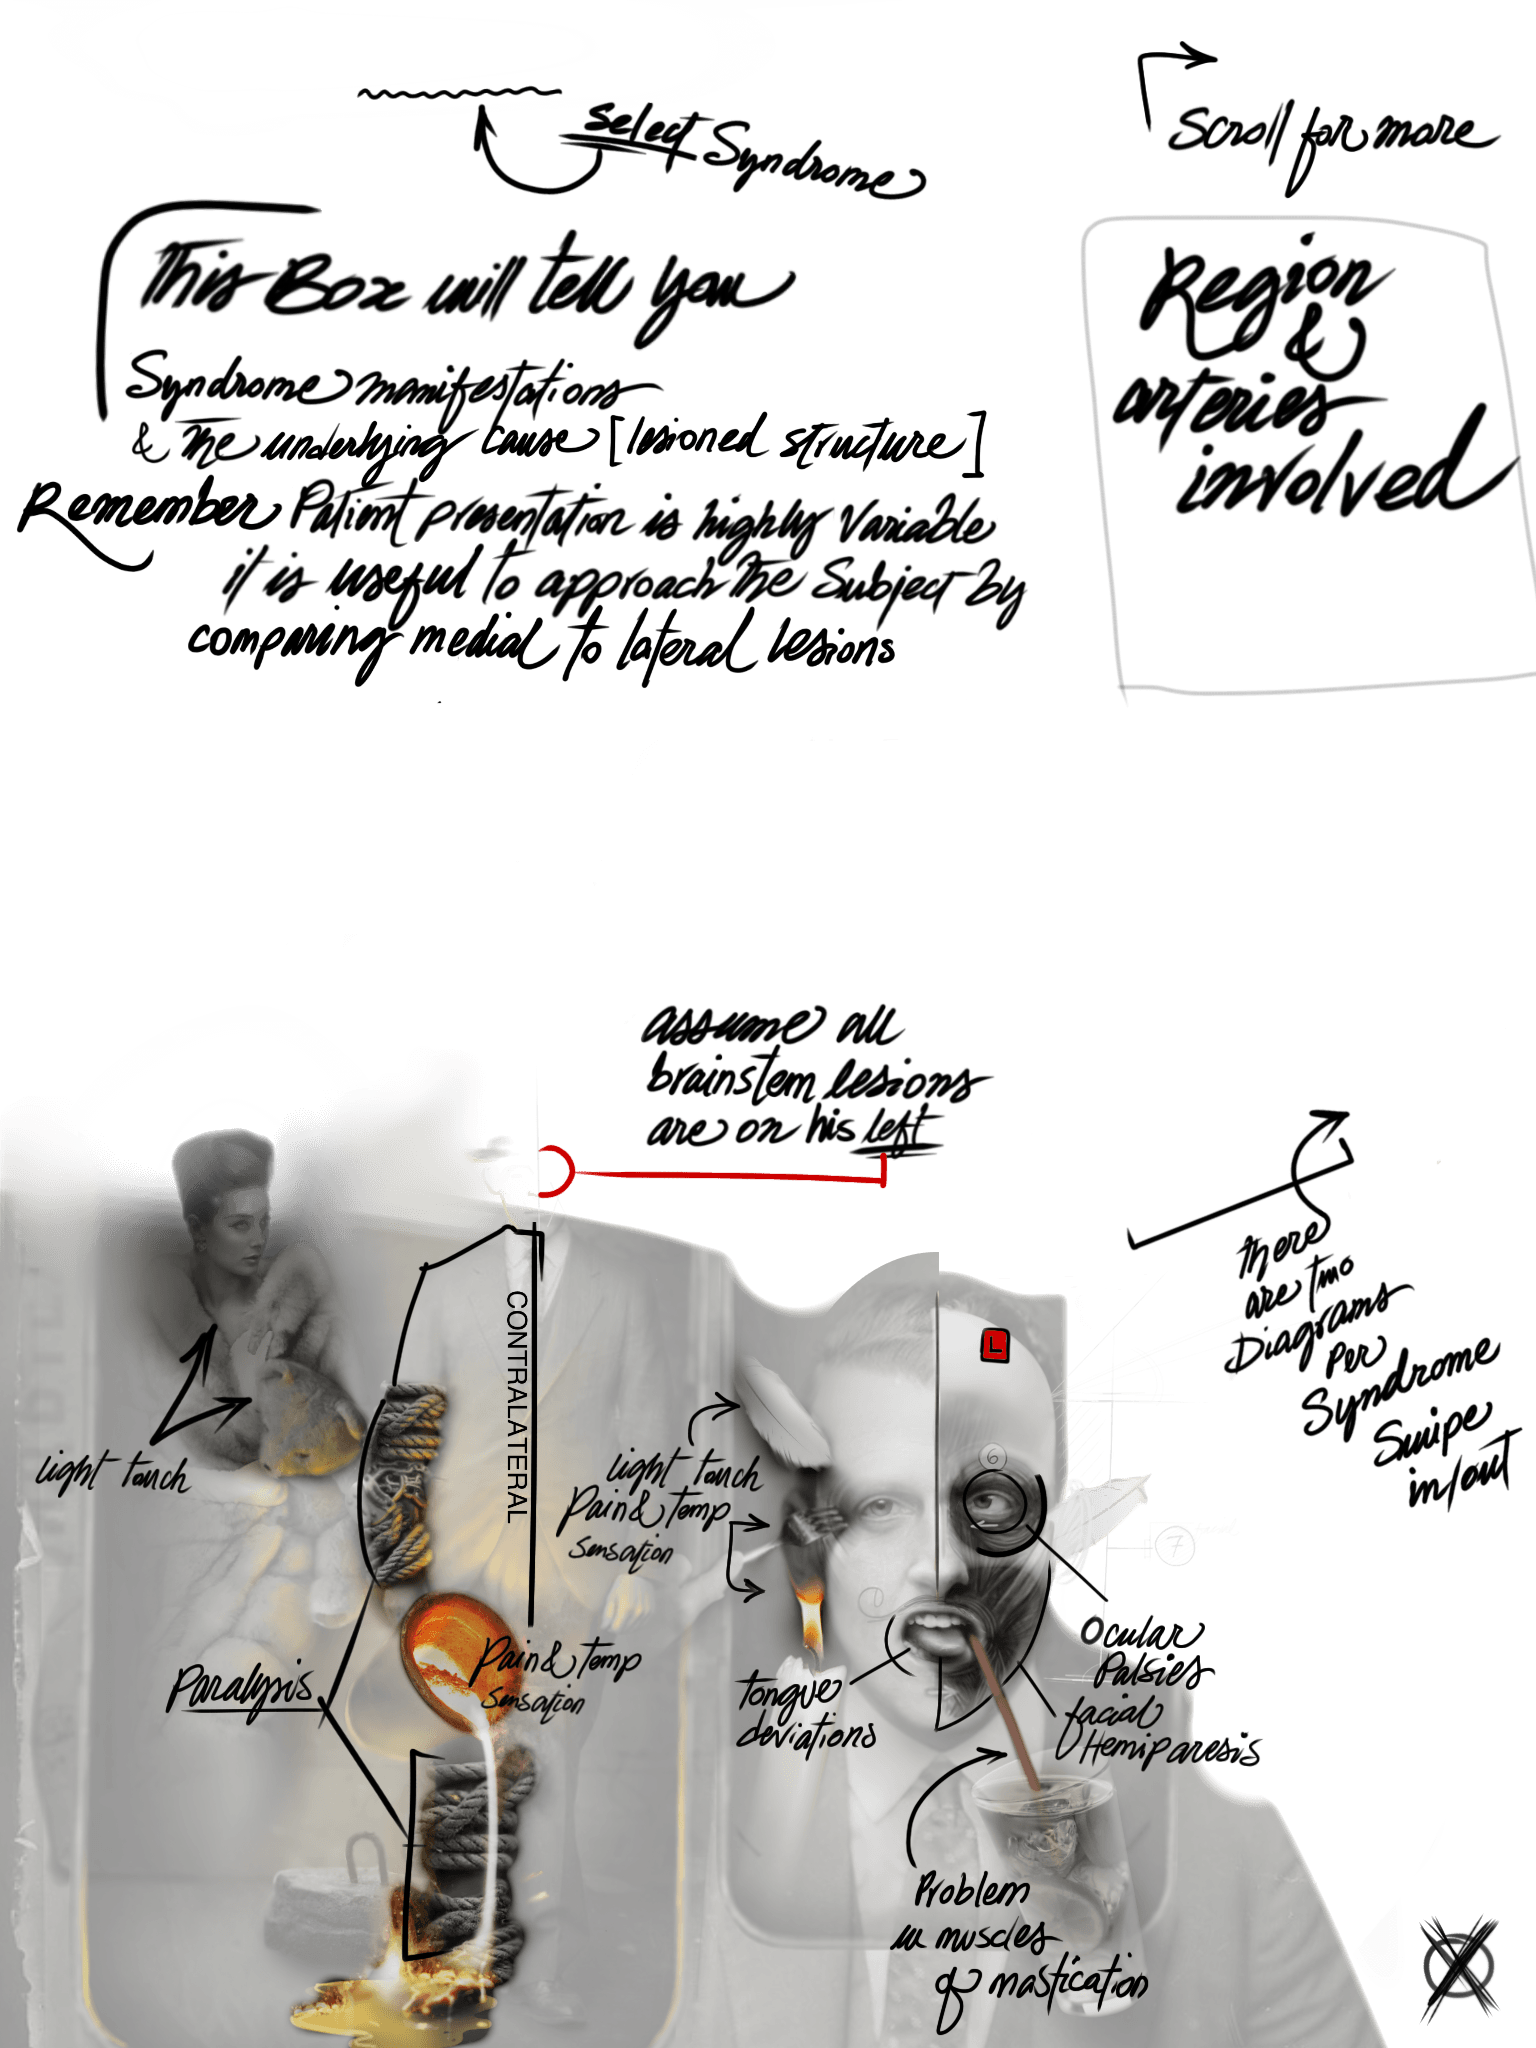 Select Syndrome
Scroll for more
This Box will tell you
Syndrome manifestations
& The underlying cause [lesioned structure]
Remember Patient presentation is highly Variable
it is useful to approach The Subject by
comparing medial to lateral lesions
Region
&
arteries
involved
assume all
brainstem lesions
are on his left
There
are two
Diagrams
Per
Syndrome
Swipe
in/out
CONTRALATERAL
L
6
7
light touch
light touch
Pain & Temp
Sensation
Paralysis
Pain & Temp
Sensation
Tongue
deviations
Ocular
Palsies
facial
Hemiparesis
Problem
in muscles
of mastication